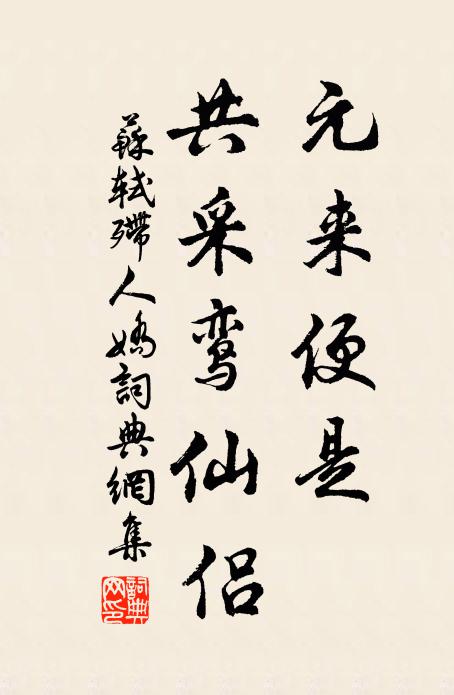 元来便是
共采鸾仙侣
蘇軾殢人嬌詞典網集
詞典网印